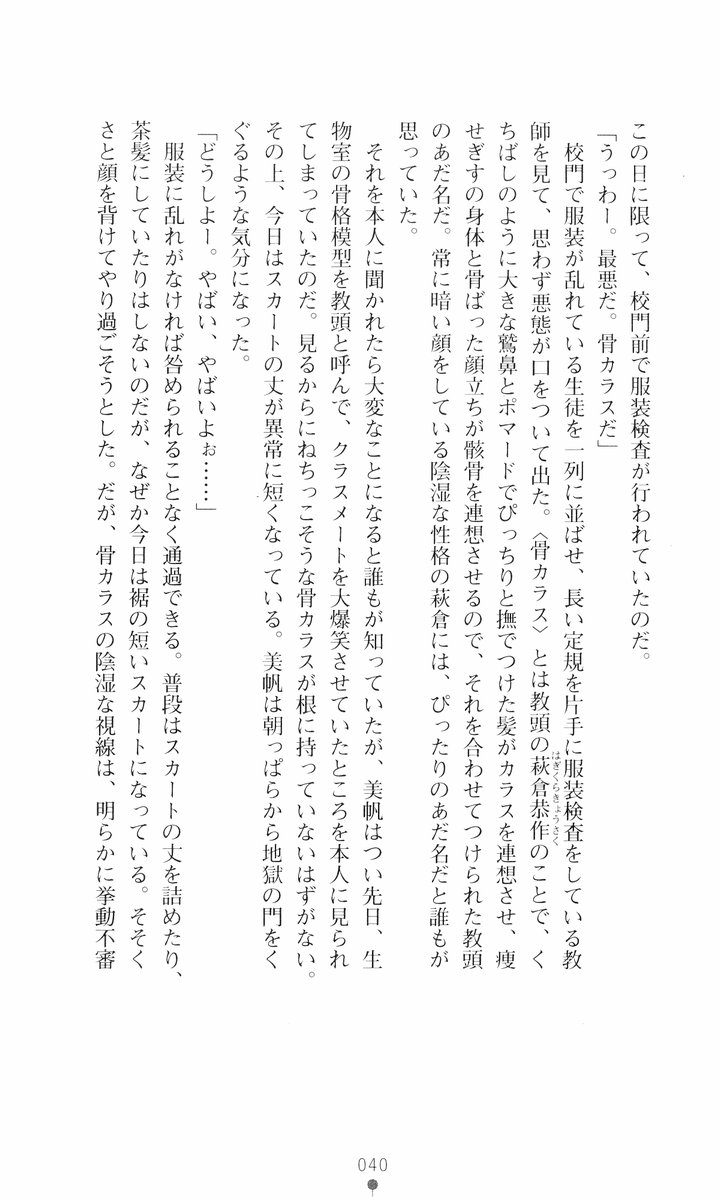 この日に限って、校門前で服装検査が行われていたのだ。
「うっわー。最悪だ。骨カラスだ」
校門で服装が乱れている生徒を一列に並ばせ、長い定規を片手に服装検査をしている教
師を見て、思わず悪態が口をついて出た。〈骨カラス〉とは教頭の萩倉恭作のことで、く
はぎくらきょうさく
ちばしのように大きな鷲鼻とポマードでぴっちりと撫でつけた髪がカラスを連想させ、痩
せぎすの身体と骨ばった顔立ちが骸骨を連想させるので、それを合わせてつけられた教頭
のあだ名だ。常に暗い顔をしている陰湿な性格の萩倉には、ぴったりのあだ名だと誰もが
思っていた。
それを本人に聞かれたら大変なことになると誰もが知っていたが、美帆はつい先日、生
物室の骨格模型を教頭と呼んで、クラスメートを大爆笑させていたところを本人に見られ
てしまっていたのだ。見るからにねちっこそうな骨カラスが根に持っていないはずがない。
その上、今日はスカートの丈が異常に短くなっている。美帆は朝っぱらから地獄の門をく
ぐるような気分になった。
「どうしよー。やばい、やばいよぉ……」
服装に乱れがなければ咎められることなく通過できる。普段はスカートの丈を詰めたり、
茶髪にしていたりはしないのだが、なぜか今日は裾の短いスカートになっている。そそく
さと顔を背けてやり過ごそうとした。だが、骨カラスの陰湿な視線は、明らかに挙動不審
040